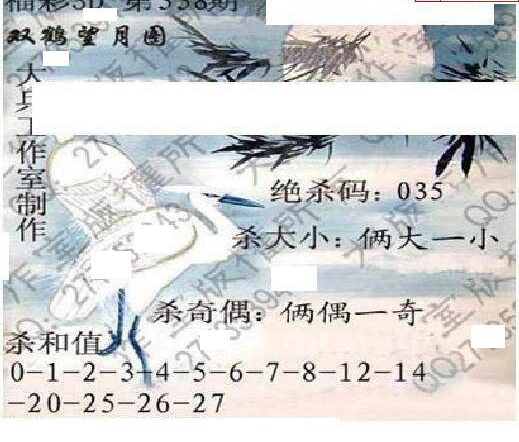 福彩3D 第338期
双鹤望月图
大兵工作室制作
绝杀码：035
杀大小：俩大一小
杀奇偶：俩偶一奇
杀和值
0-1-2-3-4-5-6-7-8-12-14
-20-25-26-27